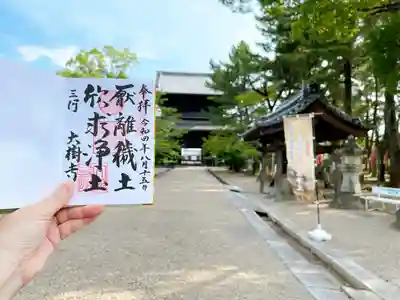 奉拝 令和四年八月十五日
厭離穢土
欣求浄土
三河 大樹寺